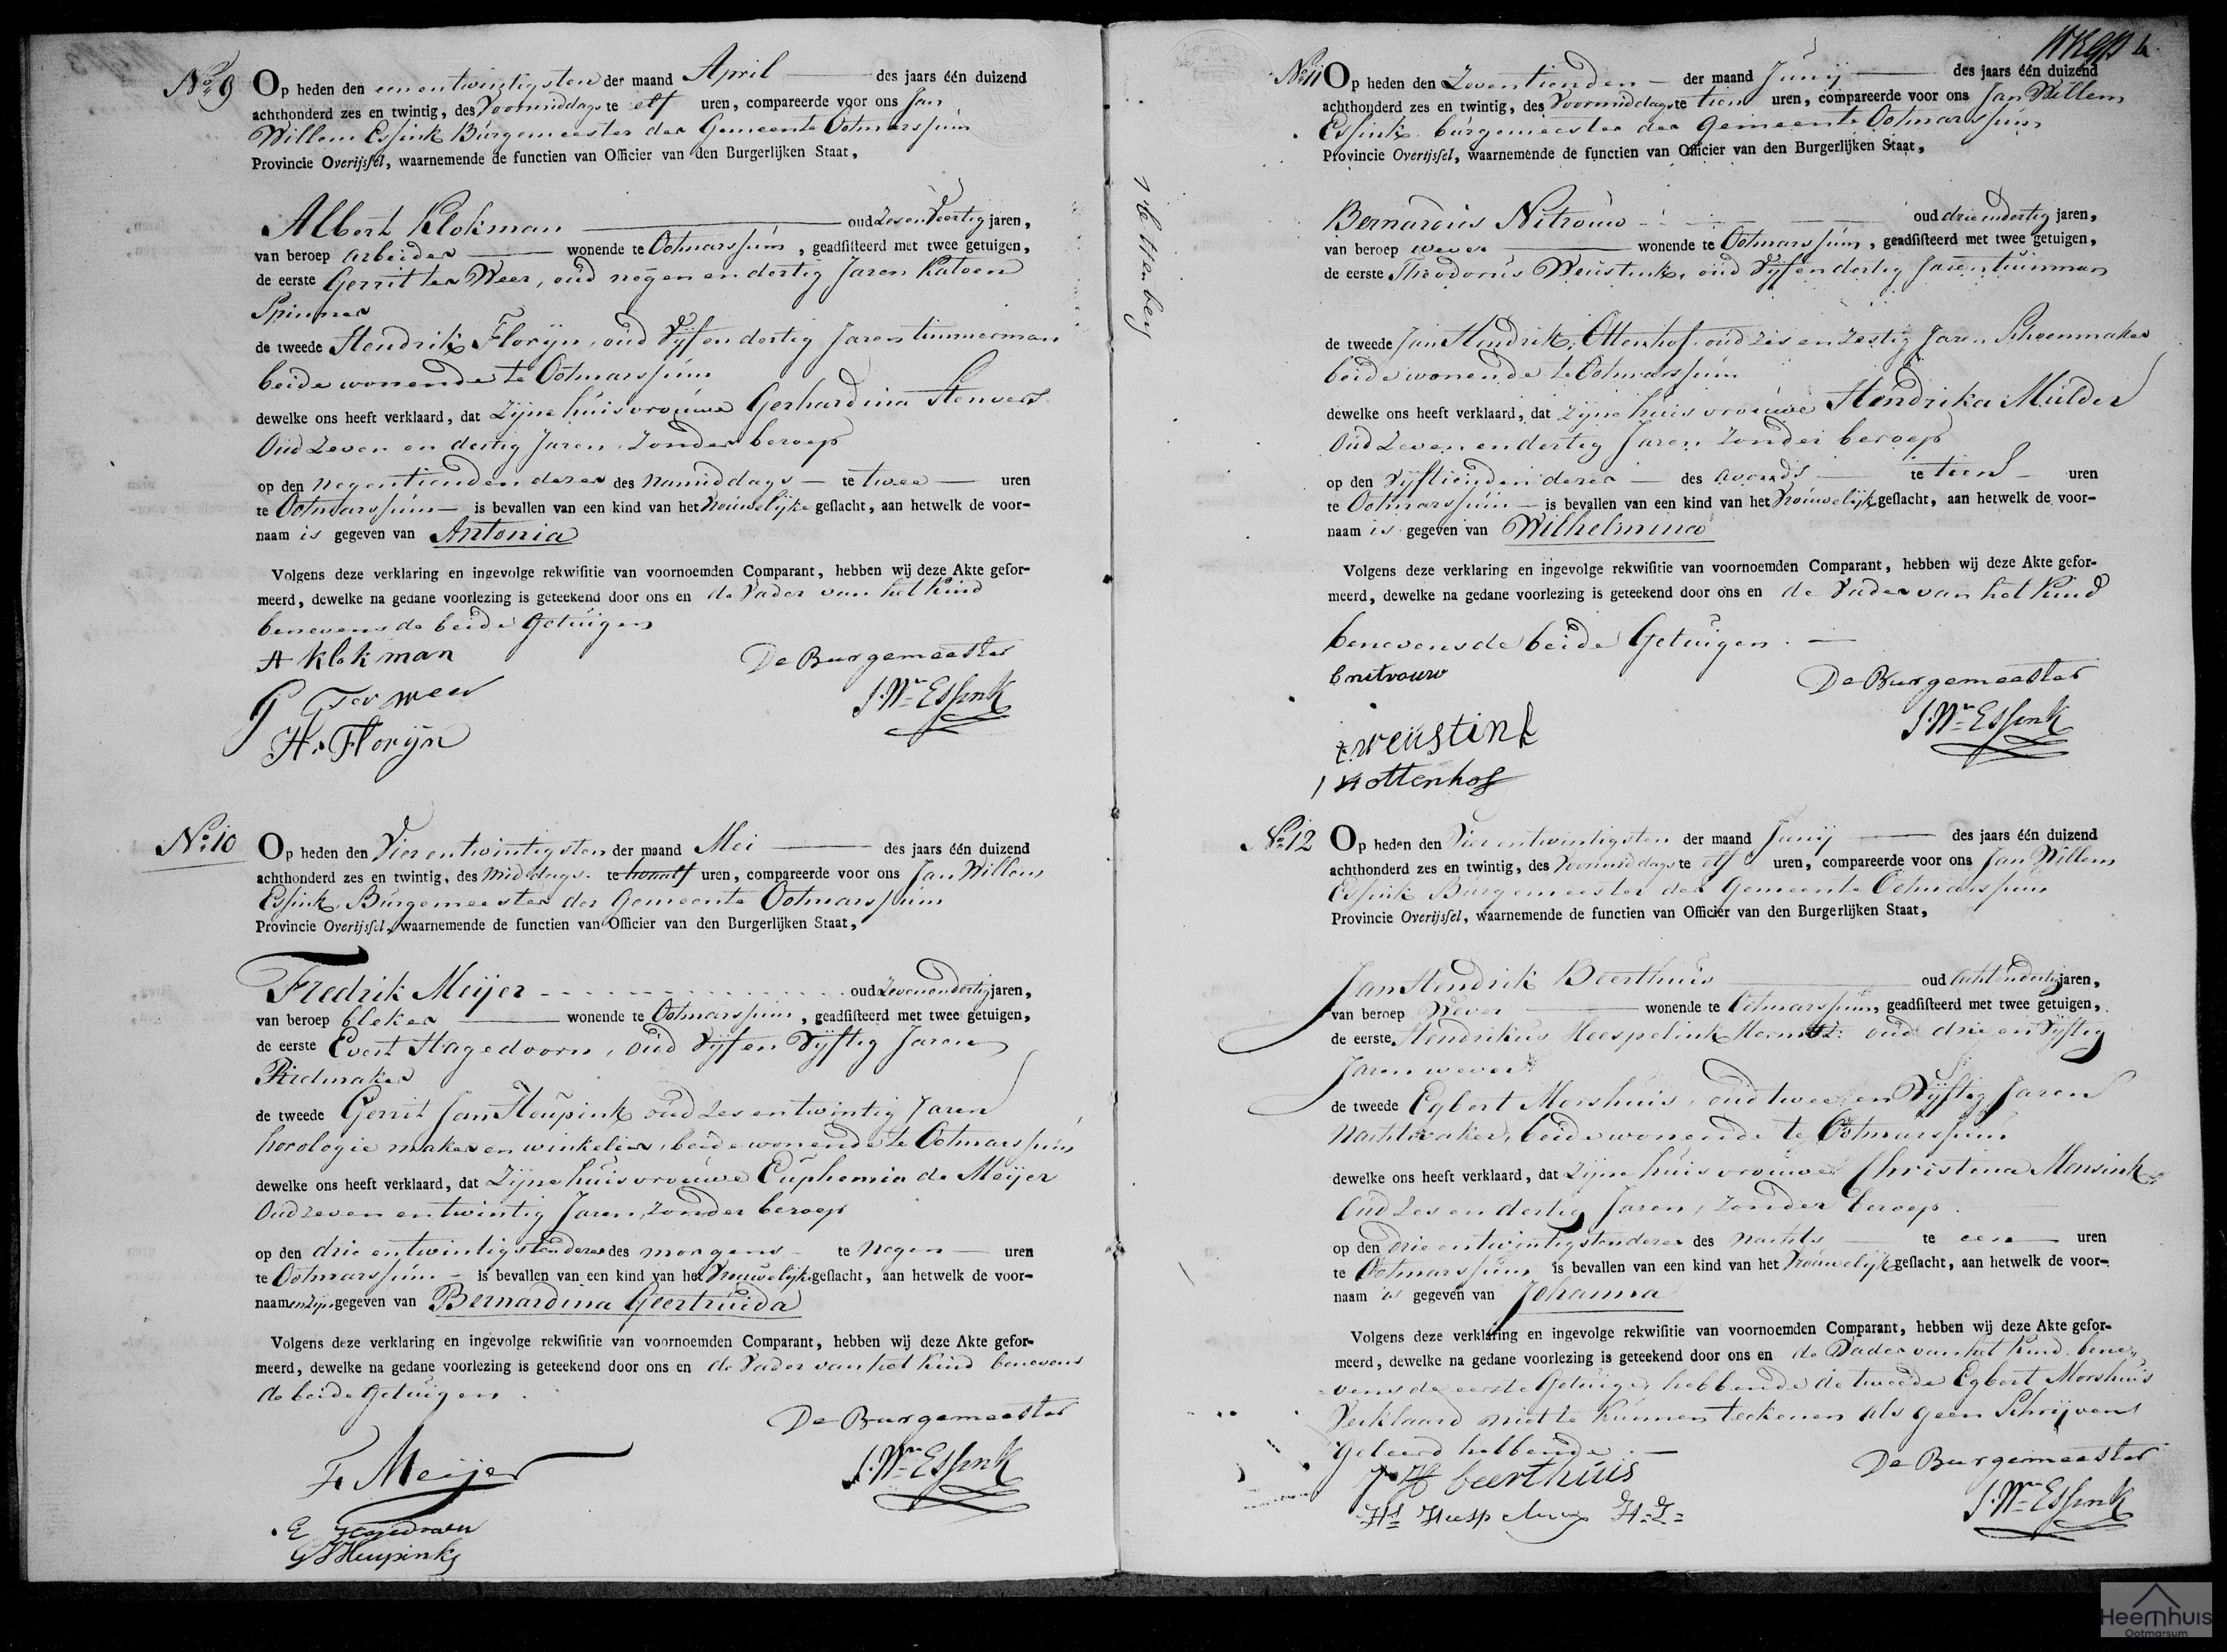 No 9 Op heden den een en twintigsten der maand April des jaars één duizend
achthonderd zes en twintig, des Voormiddags te elf uren, compareerde voor ons Jan
Willem Essink Burgemeester der Gemeente Ootmarssum
Provincie Overijssel, waarnemende de functien van Officier van den Burgerlijken Staat,
Albert Klokman oud Zes en Veertig jaren,
van beroep arbeider wonende te Ootmarssum, geadsisteerd met twee getuigen,
de eerste Gerrit ter Weer, oud negen en dertig Jaren Katoen
Spinner
de tweede Hendrik Florijn, oud Vijf en dertig Jaren timmerman
beide wonende te Ootmarssum
dewelke ons heeft verklaard, dat Zijne huisvrouwe Gerhardina Stenvers
Oud Zeven en dertig Jaren, Zonder beroep
op den negentienden dezer des namiddags te twee uren
te Ootmarssum is bevallen van een kind van het Vrouwelijke geslacht, aan hetwelk de voor-
naam is gegeven van Antonia
Volgens deze verklaring en ingevolge rekwisitie van voornoemden Comparant, hebben wij deze Akte gefor-
meerd, dewelke na gedane voorlezing is geteekend door ons en de Vader van het Kind
benevens de beide Getuigen
A Klokman De Burgemeester
G Ter Weer J. Wm Essink
H. Florijn
No 10 Op heden den Vier en twintigsten der maand Mei des jaars één duizend
achthonderd zes en twintig, des middags te twaalf uren, compareerde voor ons Jan Willem
Essink, Burgemeester der Gemeente Ootmarssum
Provincie Overijssel, waarnemende de functien van Officier van den Burgerlijken Staat,
Fredrik Meijer oud Zeven en dertig jaren,
van beroep bleker wonende te Ootmarssum, geadsisteerd met twee getuigen,
de eerste Evert Hagedoorn, oud Vijf en Vijftig Jaren
Riedmaker
de tweede Gerrit Jan Heupink oud Zes en twintig Jaren
horologie maker en winkelier, beide wonende te Ootmarssum
dewelke ons heeft verklaard, dat Zijne huisvrouwe Euphemia de Meijer
Oud zeven en twintig Jaren, Zonder beroep
op den drie en twintigsten dezer des morgens te Negen uren
te Ootmarssum is bevallen van een kind van het Vrouwelijk geslacht, aan hetwelk de voor-
naam en zijn gegeven van Bernardina Geertruida
Volgens deze verklaring en ingevolge rekwisitie van voornoemden Comparant, hebben wij deze Akte gefor-
meerd, dewelke na gedane voorlezing is geteekend door ons en de Vader van het Kind benevens
de beide Getuigen.
De Burgemeester
F. Meijer J. Wm Essink
E Hagedoorn
GJ Heupink
No 11 Op heden den Zeventienden der maand Junij des jaars één duizend
achthonderd zes en twintig, des Voormiddags te tien uren, compareerde voor ons Jan Willem
Essink burgemeester der Gemeente Ootmarssum
Provincie Overijssel, waarnemende de functien van Officier van den Burgerlijken Staat,
Bernardus Nitrouw oud drie en dertig jaren,
van beroep wever wonende te Ootmarssum, geadsisteerd met twee getuigen,
de eerste Theodorus Weustink, oud Vijf en dertig Jaren tuinman
de tweede Jan Hendrik Ottenhof oud zes en Zestig Jaren Schoenmaker
beide wonende te Ootmarssum
dewelke ons heeft verklaard, dat Zijne huisvrouwe Hendrika Mulder
Oud Zeven en dertig Jaren Zonder beroep
op den Vijftienden dezer des avonds te tien uren
te Ootmarssum is bevallen van een kind van het Vrouwelijk geslacht, aan hetwelk de voor-
naam is gegeven van Wilhelmina
Volgens deze verklaring en ingevolge rekwisitie van voornoemden Comparant, hebben wij deze Akte gefor-
meerd, dewelke na gedane voorlezing is geteekend door ons en de Vader van het Kind
benevens de beide Getuigen.
b nitrouw De Burgemeester
t. weüstink J. Wm Essink
J H ottenhof
No 12 Op heden den Vier en twintigsten der maand Junij des jaars één duizend
achthonderd zes en twintig, des Voormiddags te elf uren, compareerde voor ons Jan Willem
Essink Burgemeester der Gemeente Ootmarssum
Provincie Overijssel, waarnemende de functien van Officier van den Burgerlijken Staat,
Jan Hendrik Beerthuis oud Acht en dertig jaren,
van beroep Wever wonende te Ootmarssum, geadsisteerd met twee getuigen,
de eerste Hendrikus Heespelink oud drie en Vijftig
Jaren wever
de tweede Egbert Morshuis, oud twee en Vijftig Jaren
Nachtwaker, beide wonende te Ootmarssum
dewelke ons heeft verklaard, dat Zijne huisvrouwe Christina Monsink
Oud Zes en dertig Jaren, Zonder beroep.
op den drie en twintigsten dezer des Nachts te een uren
te Ootmarssum is bevallen van een kind van het Vrouwelijk geslacht, aan hetwelk de voor-
naam is gegeven van Johanna
Volgens deze verklaring en ingevolge rekwisitie van voornoemden Comparant, hebben wij deze Akte gefor-
meerd, dewelke na gedane voorlezing is geteekend door ons en de Vader van het Kind bene-
vens de eerste Getuige, hebbende de tweede Egbert Morshuis
Verklaard niet te kunnen teekenen als geen Schrijven
Geleerd hebbende.
De Burgemeester
J H beerthuis J. Wm Essink
Heemhuis
Ootmarsum